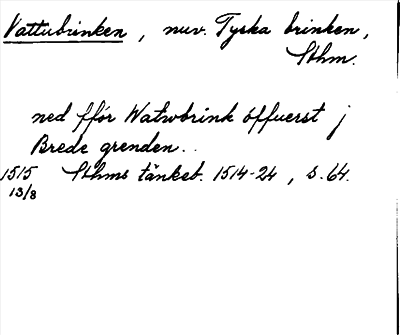 Vattubrinken, nuv. Tyska brinken,
Sthm.
ned fför Watwbrink öffuerst j
Brede grenden..
1515 Sthms tänkeb. 1514-24, s. 64.
13/8